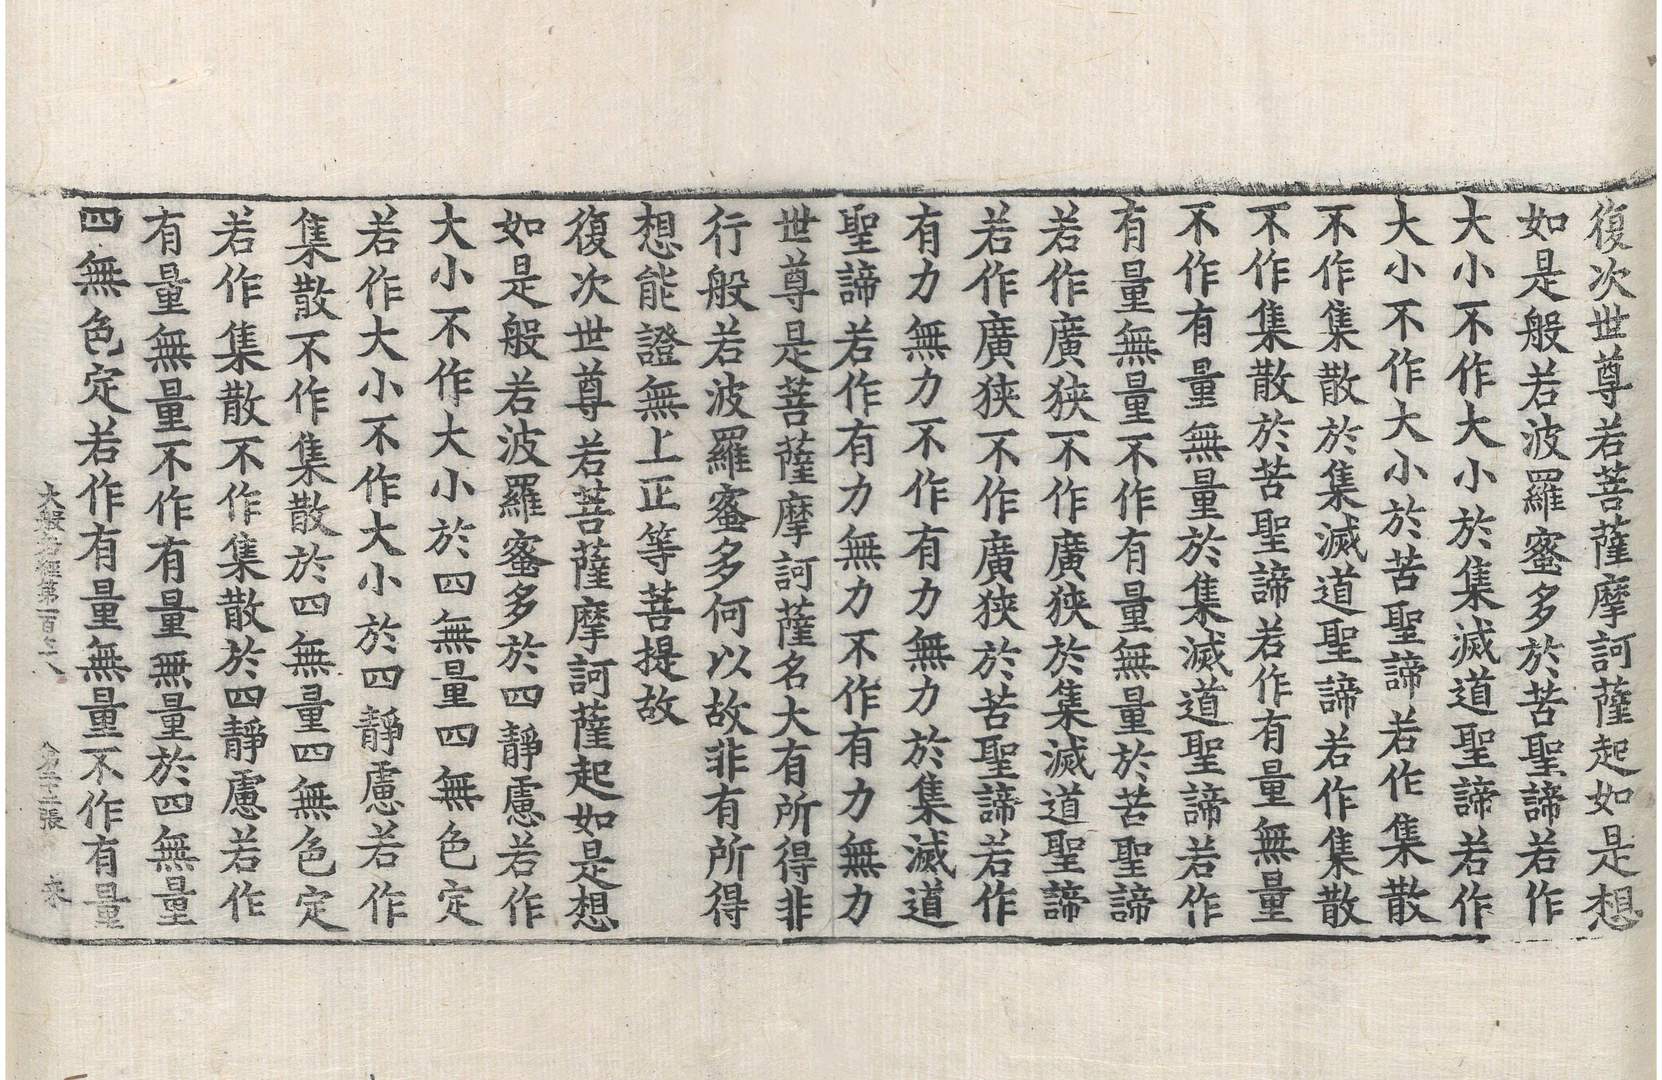 復次世尊若菩薩摩訶薩起如是想
如是般若波羅蜜多於苦聖諦若作
大小不作大小於集滅道聖諦若作
大小不作大小於苦聖諦若作集散
不作集散於集滅道聖諦若作集散
不作集散於苦聖諦若作有量無量
不作有量無量於集滅道聖諦若作
有量無量不作有量無量於苦聖諦
若作廣狹不作廣狹於集滅道聖諦
若作廣狹不作廣狹於苦聖諦若作
有力無力不作有力無力於集滅道
聖諦若作有力無力不作有力無力
世尊是菩薩摩訶薩名大有所得非
行般若波羅蜜多何以故非有所得
想能證無上正等菩提故
復次世尊若菩薩摩訶薩起如是想
如是般若波羅蜜多於四靜慮若作
大小不作大小於四無量四無色定
若作大小不作大小於四靜慮若作
集散不作集散於四無量四無色定
若作集散不作集散於四靜慮若作
有量無量不作有量無量於四無量
四無色定若作有量無量不作有量
大般若經第一百七八 張 來